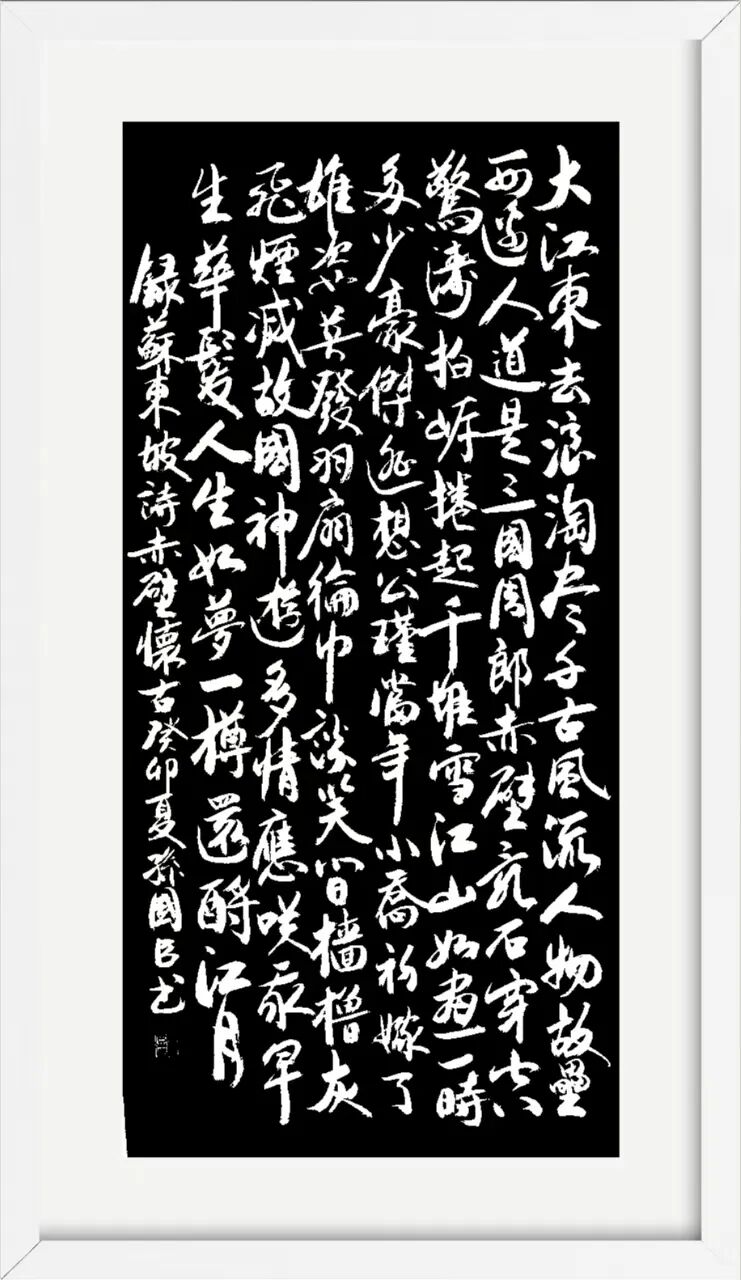 大江東去浪淘尽千古風流人物故壘
西邊人道是三國周郎赤壁亂石穿空
驚濤拍岸捲起千堆雪江山如畫一時
多少豪傑遥想公瑾當年小喬初嫁了
雄姿英發羽扇綸巾談笑間檣櫓灰
飛煙滅故國神遊多情應咲我早
生華髮人生如夢一樽還酹江月
録蘇東坡詩赤壁懷古癸卯夏孫國臣书